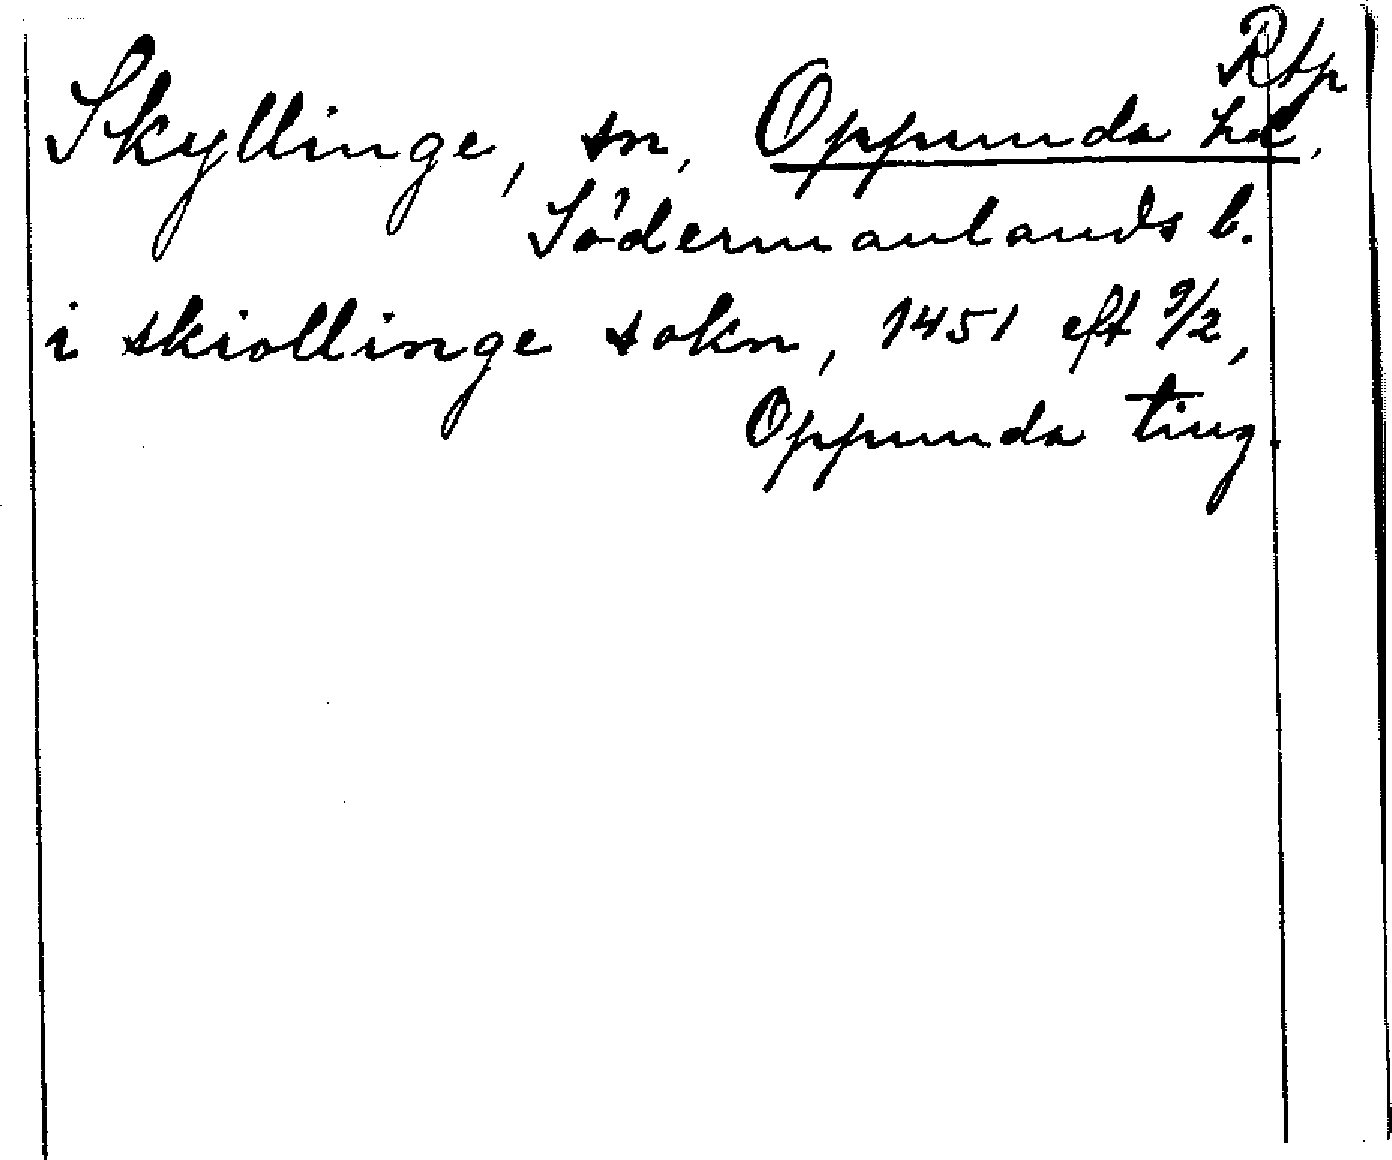 Rtp
Skyllinge, sn, Oppunda hd,
Södermanlands l.
i skiollinge sokn, 1451 eft 9/2,
Oppunda ting.